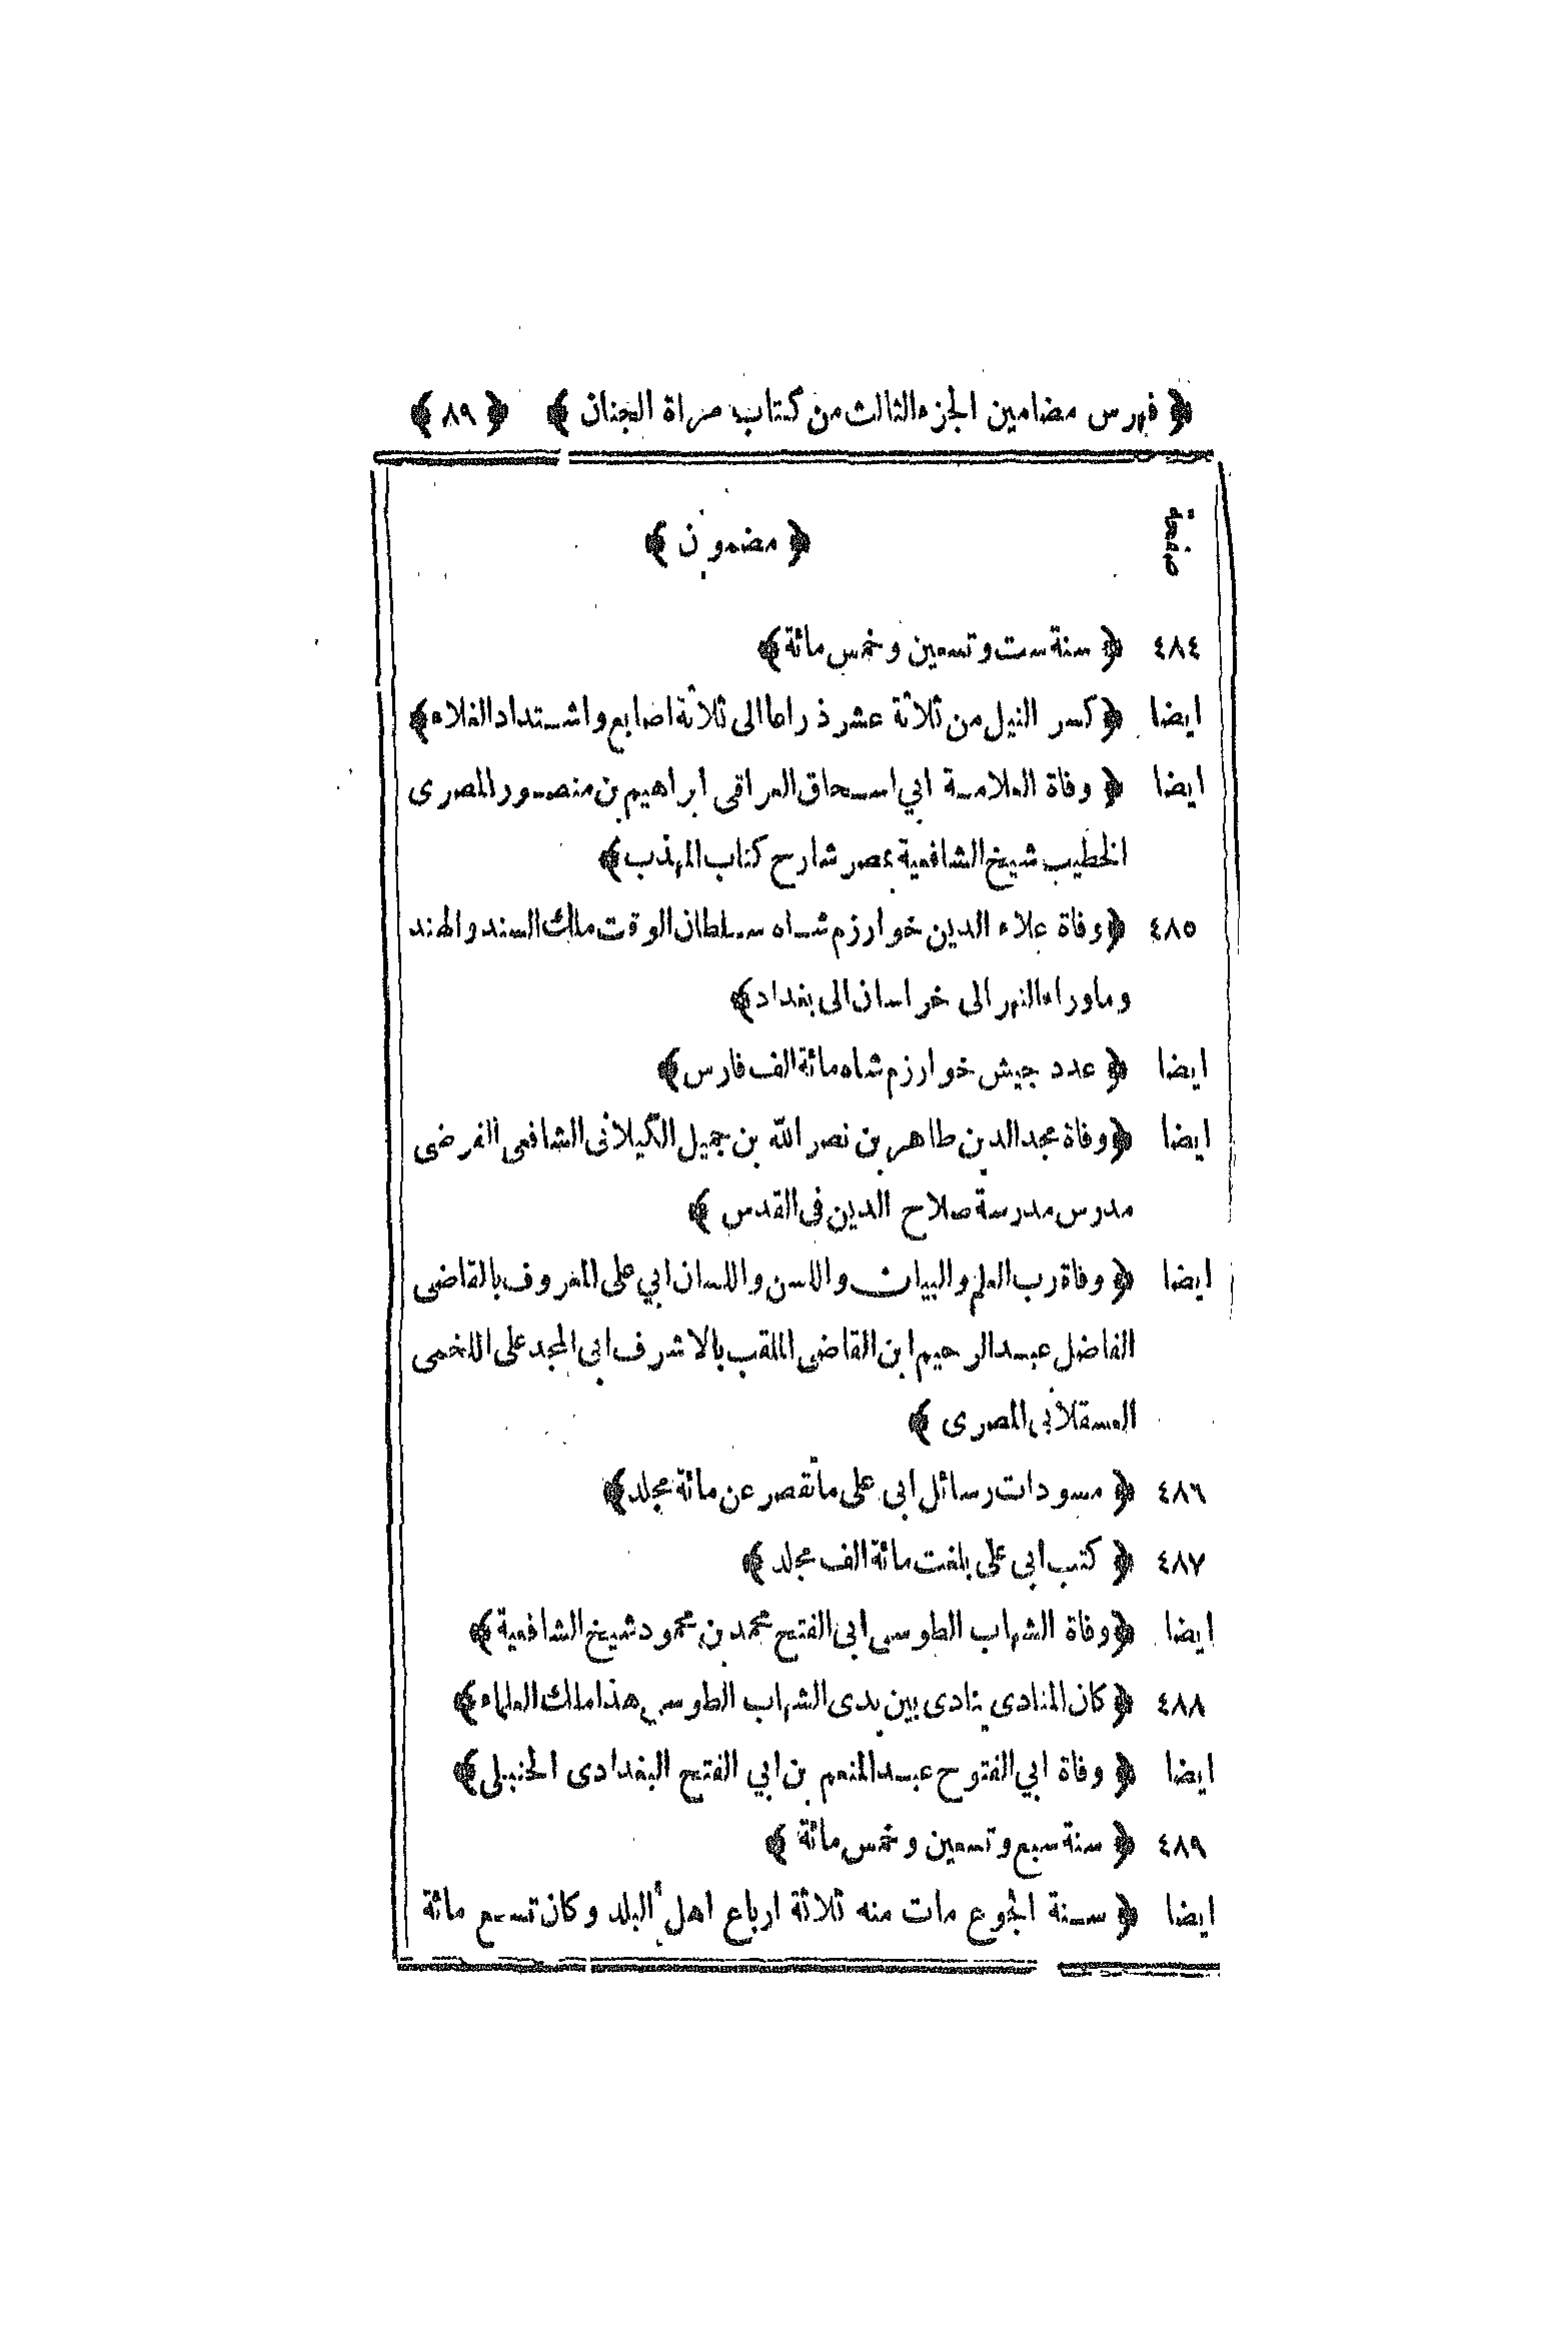 ﴿ فهرس مضامين الجزء الثالث من كتاب مراة الجنان ﴾ ﴿ ٨٩ ﴾
صفحة ﴿ مضمون ﴾
٤٨٤ ﴿ سنة ست و تسعين و خمس مائة ﴾
ايضا ﴿ كسر النيل من ثلاثة عشر ذراعا الى ثلاثة اصابع و اشتداد الغلاء ﴾
ايضا ﴿ وفاة العلامة ابي اسحاق العراقي ابراهيم بن منصور المصرى
الخطيب شيخ الشافعية بمصر شارح كتاب المهذب ﴾
٤٨٥ ﴿ وفاة علاء الدين خوارزم شاه سلطان الوقت ملك السند والهند
وماوراء النهر الى خراسان الى بغداد ﴾
ايضا ﴿ عدد جيش خوارزم شاه مائة الف فارس ﴾
ايضا ﴿ وفاة مجد الدين طاهر بن نصر الله بن جميل الكيلانى الشافعى الفرضى
مدرس مدرسة صلاح الدين فى القدس ﴾
ايضا ﴿ وفاة رب العلم والبيان واللسن واللسان ابي على المعروف بالقاضى
الفاضل عبد الرحيم ابن القاضى الملقب بالاشرف ابى المجد على اللخمى
العسقلانى المصرى ﴾
٤٨٦ ﴿ مسودات رسائل ابى على ماتقصر عن مائة مجلد ﴾
٤٨٧ ﴿ كتب ابى على بلغت مائة الف مجلد ﴾
ايضا ﴿ وفاة الشهاب الطوسى ابى الفتح محمد بن محمود شيخ الشافعية ﴾
٤٨٨ ﴿ كان المنادى ينادى بين يدى الشهاب الطوسى هذا ملك العلماء ﴾
ايضا ﴿ وفاة ابي الفتوح عبد المنعم بن ابي الفتح البغدادى الحنبلى ﴾
٤٨٩ ﴿ سنة سبع و تسعين و خمس مائة ﴾
ايضا ﴿ سنة الجوع مات منه ثلاثة ارباع اهل البلد و كان تسع مائة